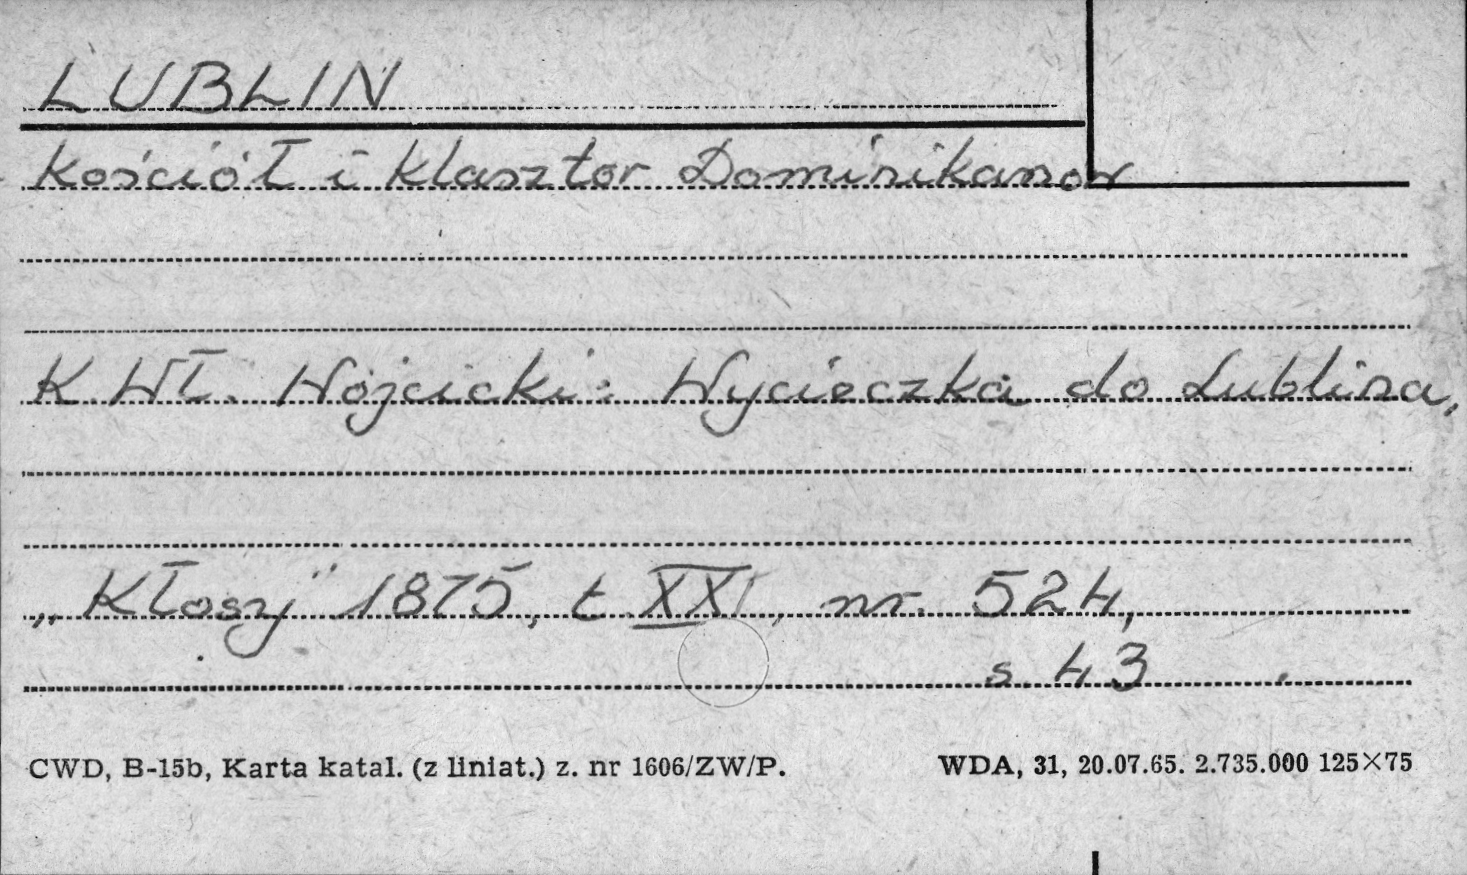 LUBLIN
Kościół i klasztor Dominikanów
K. Wł. Wójcicki: Wycieczka do Lublina,
„Kłosy" 1875, t. XXI, nr. 524,
s. 43
CWD, B-15b, Karta katal. (z liniat.) z. nr 1606/ZW/P. WDA, 31, 20.07.65. 2.735.000 125×75